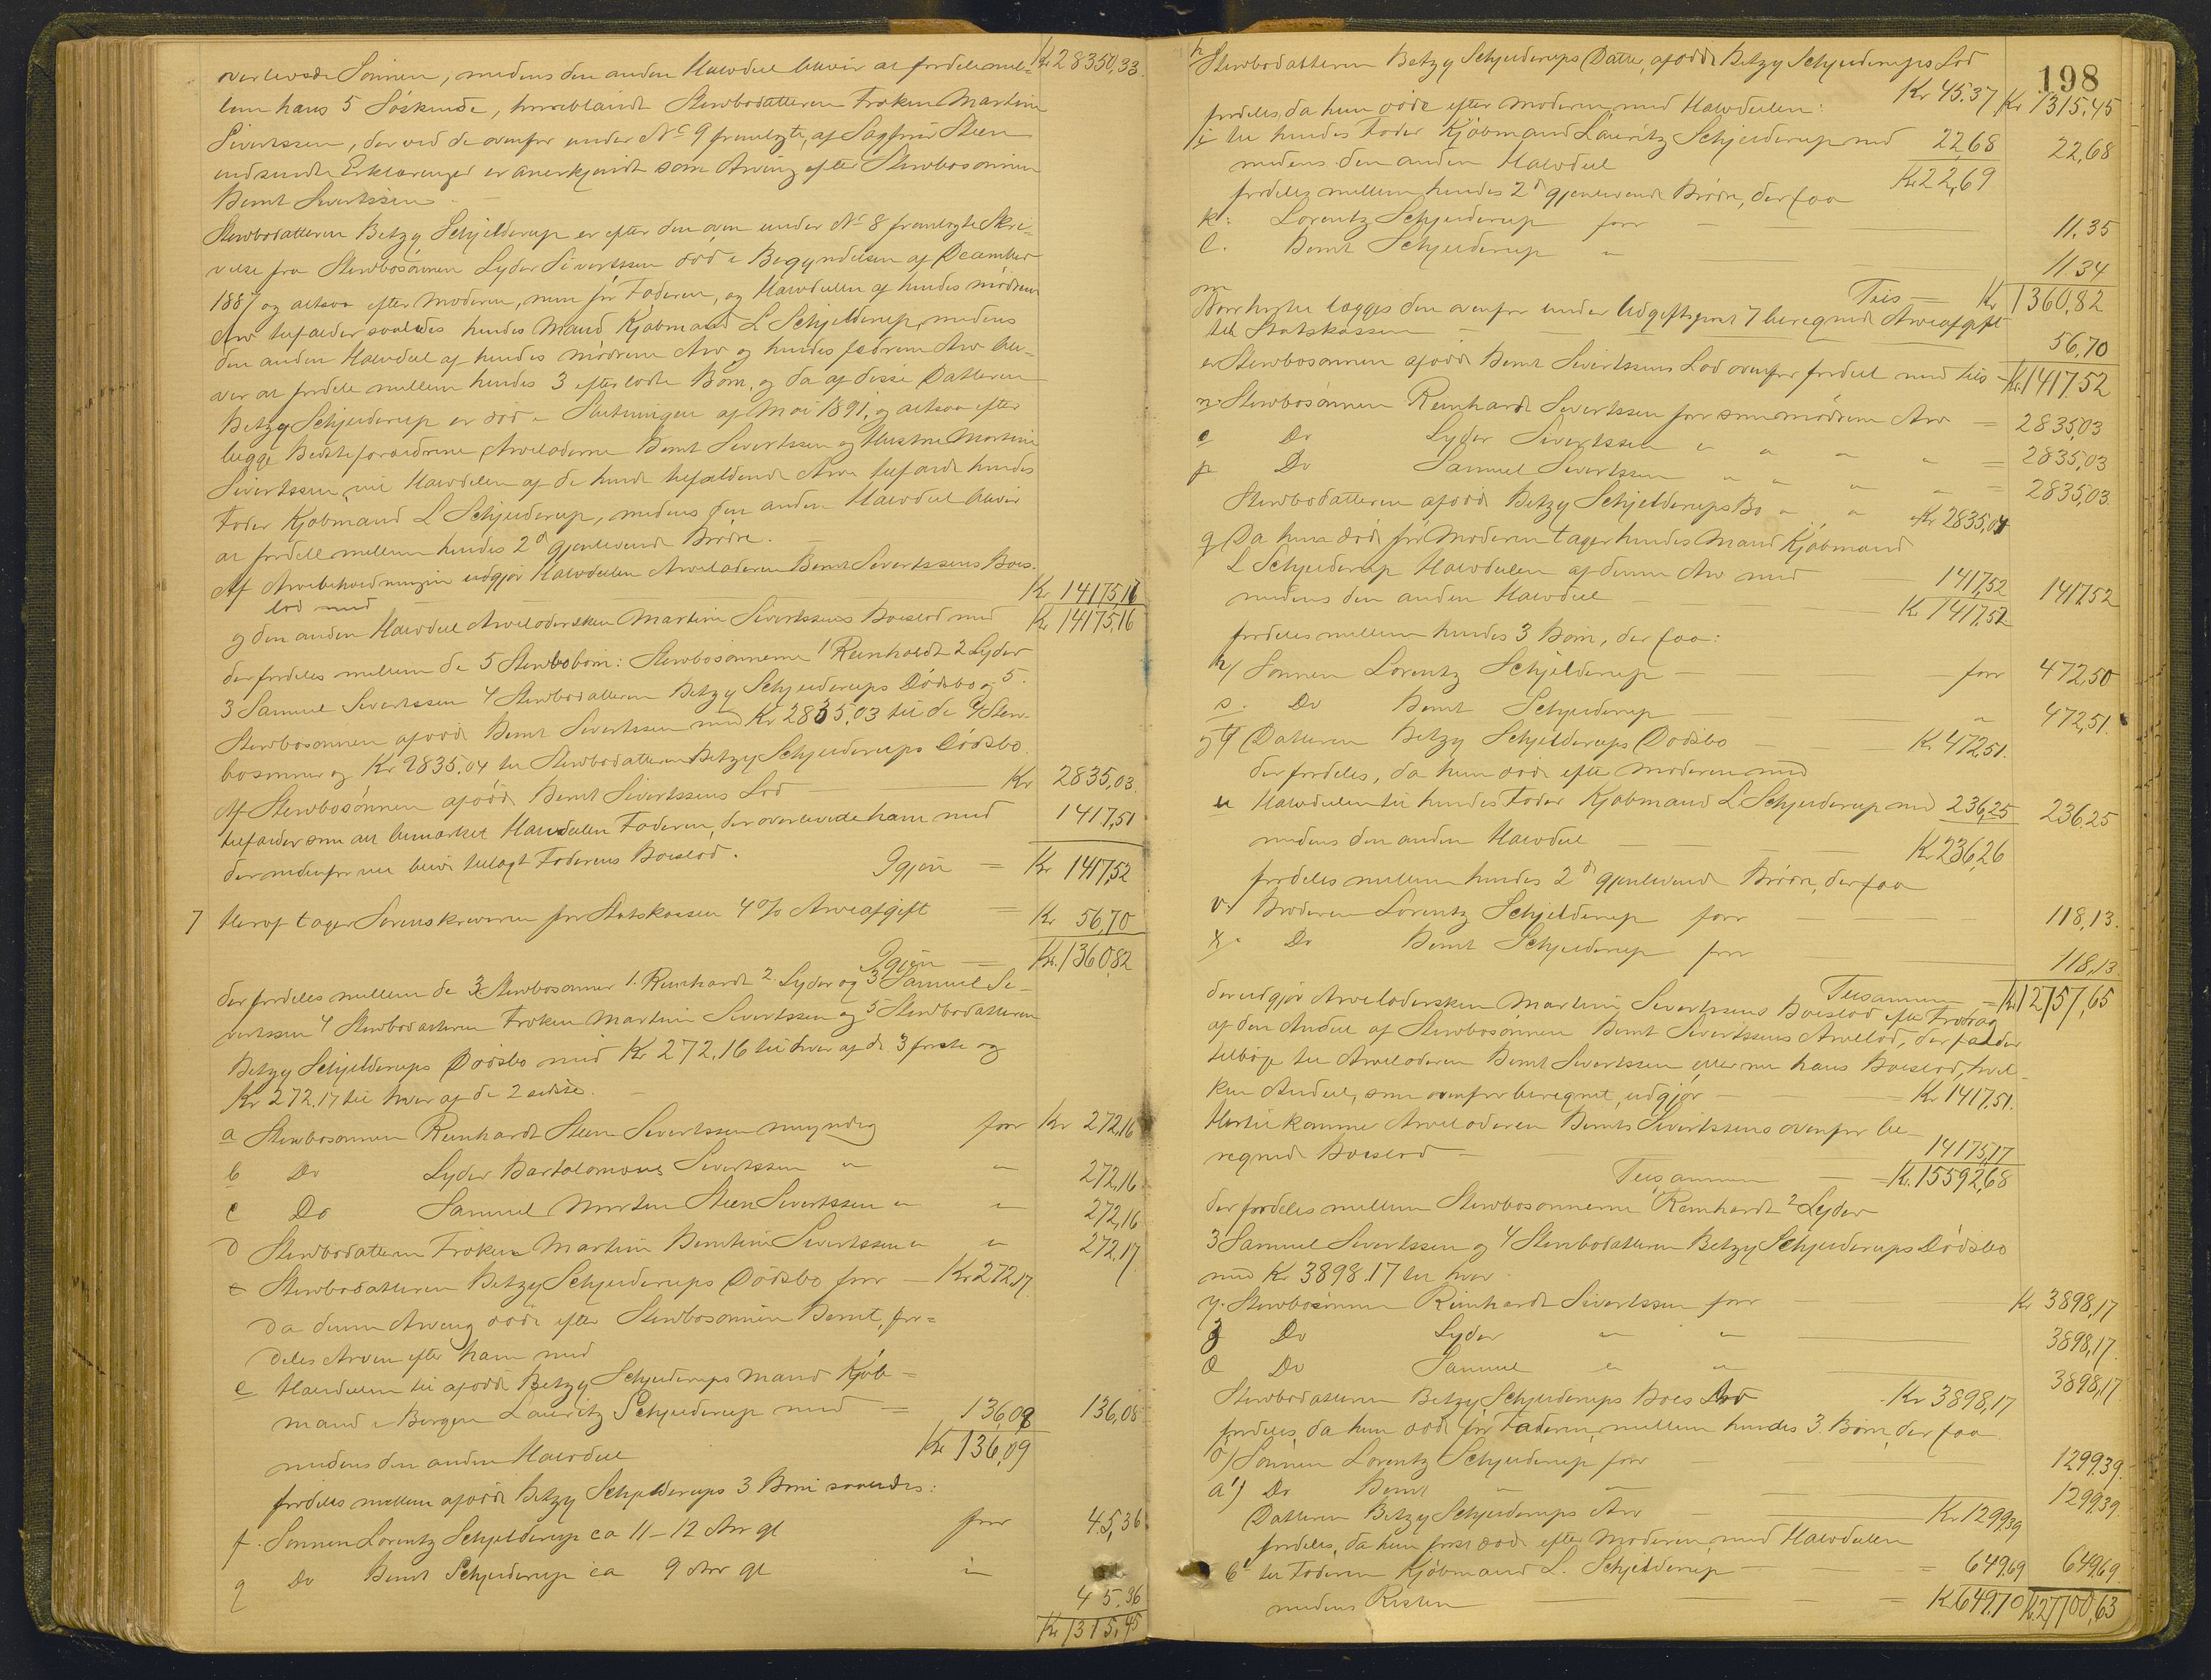 Kr 28350,33.
overlevede Sønnen, medens den anden Halvdeel bliver at fordele mel-
lem hans 5 Søskende, hvoriblandt Stervbodatteren Frøken Martine
Sivertssen, der ved de ovenfor under No 9 fremlagte, af Sagfører Steen
indsendte Erklæringer er anerkjendt som Arving efter Stervbosønnen
Bernt Sivertssen.
Stervbodatteren Betzy Schjelderup er efter den oven under No 8 fremlagte Skri-
velse fra Stervbosønnen Lyder Sivertssen død i Begyndelsen af December
1887 og altsaa efter Moderen, men før Faderen, og Halvdelen af hendes mødrene
Arv tilfalder saaledes hendes Mand Kjøbmand L Schjelderup, medens
den anden Halvdeel af hendes mødrene Arv og hendes fædrene Arv bli-
ver at fordele mellem hendes 3 efterladte Børn, og da af disse Datteren
Betzy Schjelderup er død i Slutningen af Mai 1891, og altsaa efter
begge Bedsteforældrene, Arveladerne Bernt Sivertssen og Hustru Martine
Sivertssen, vil Halvdelen af de hende tilfaldende Arve tilfalde hendes
Fader Kjøbmand L Schjelderup, medens den anden Halvdeel bliver
at fordele mellem hendes 2de gjenlevende Brødre.
Af Arvebeholdningen udgjør Halvdelen Arveladeren Bernt Sivertssens Boes-
lod med Kr 14175,17
og den anden Halvdeel Arveladersken Martine Sivertssens Boeslod med Kr 14175,16
der fordeles mellem de 5 Stervbobørn: Stervbosønnerne 1 Reinhardt 2 Lyder
3 Samuel Sivertssen 4 Stervbodatteren Betzy Schjelderups Dødsbo og 5.
Stervbosønnen afdøde Bernt Sivertssen med Kr 2835,03 til de 4 Sterv-
bosønner og Kr 2835.04 til Stervbodatteren Betzy Schjelderups Dødsbo.
Af Stervbosønnen afdøde Bernt Sivertssens Lod Kr 2835,03.
tilfalder som alt bemærket Halvdelen Faderen, der overlevede ham med 1417,51
der nedenfor vil blive tillagt Faderens Boeslod. Igjen = Kr 1417,52
7 Heraf tager Sorenskriveren for Statskassen 4 % Arveafgift = Kr 56,70
Igjen Kr. 1360,82
der fordeles mellem de 3 Stervbosønner 1. Reinhardt 2. Lyder og 3 Samuel Si-
vertssen 4 Stervbodatteren Frøken Martine Sivertssen og 5 Stervbodatteren
Betzy Schjelderups Dødsbo med Kr 272,16 til hver af de 3 første og
Kr 272,17 til hver af de 2 sidste.
a Stervbosønnen Reinhardt Steen Sivertssen myndig for Kr 272,16
b Do Lyder Bartolomæus Sivertssen " " 272,16
c Do Samuel Morten Steen Sivertssen " " 272,16
d Stervbodatteren Frøken Martine Berntine Sivertssen " " 272.17
e Stervbodatteren Betzy Schjelderups Dødsbo for — Kr 272,17
da denne Arving døde efter Stervbosønnen Bernt, for=
deles Arven efter ham med
e Halvdelen til afdøde Betzy Schjelderups Mand Kjøb=
mand i Bergen Lauritz Schjelderup med = 136,08 136,08
medens den anden Halvdeel Kr 136,09
fordeles mellem afdøde Betzy Schjelderups 3 Børn saaledes:
f. Sønnen Lorentz Schjelderup ca 11–12 Aar gl for 45,36
g Do Bernt Schjelderup ca 9 Aar gl " 45.36
Kr 1315,45
198
h Stervbodatteren Betzy Schjelderups Datter, afdøde Betzy Schjelderups Lod
Kr 45.37 Kr 1315.45
fordeles da hun døde efter Moderen, med Halvdelen:
i til hendes Fader Kjøbmand Lauritz Schjelderup med 22,68 22,68
medens den anden Halvdeel Kr 22,69
fordeles mellem hendes 2de gjenlevende Brødre, der faa
k: Lorentz Schjelderup for 11.35
l. Bernt Schjelderup " 11 34
Tils — Kr 1360,82
m Hertil lægges den ovenfor under Udgiftspost 7 beregnede Arveafgift
til Statskassen 56,70
er Stervbosønnen afdøde Bernt Sivertssens Lod ovenfor fordeelt med tils Kr. 1417,52
n. Stervbosønnen Reinhardt Sivertssen for sin mødrene Arv = 2835,03
o Do Lyder Sivertssen " " " " = 2835,03
p Do Samuel Sivertssen " " " " = 2835,03.
Stervbodatteren afdøde Betzy Schjelderups Bo " " Kr 2835,04
q Da hun døde før Moderen tager hendes Mand Kjøbmand
L Schjelderup Halvdelen af denne Arv med 1417,52 1417,52
medens den anden Halvdeel Kr 1417,52
fordeles mellem hendes 3 Børn, der faa:
r/ Sønnen Lorentz Schjelderup for 472,50
s. Do Bernt Schjelderup " 472,51.
og t/ Datteren Betzy Schjelderups Dødsbo Kr 472,51.
der fordeles, da hun døde efter Moderen med
u Halvdelen til hendes Fader Kjøbmand L Schjelderup med 236,25 236,25
medens den anden Halvdeel Kr 236,26
fordeles mellem hendes 2de gjenlevende Brødre, der faa
v. Broderen Lorentz Schjelderup for 118,13.
x. Do Bernt Schjelderup for 118,13.
Tilsammen = Kr 12757,65
der udgjør Arveladersken Martine Sivertssens Boeslod efter Fradrag
af den Andeel af Stervbosønnen Bernt Sivertssens Arvelod, der falder
tilbage til Arveladeren Bernt Sivertssen eller nu hans Boeslod, hvil-
ken Andeel, som ovenfor beregnet, udgjør — Kr 1417,51.
Hertil komme Arveladeren Bernts Sivertssens ovenfor be-
regnede Boeslod 14175,17
Tilsammen Kr. 15592,68
der fordeles mellem Stervbosønnerne 1 Reinhardt 2 Lyder
3 Samuel Sivertssen og 4 Stervbodatteren Betzy Schjelderups Dødsbo
med Kr 3898.17 til hver.
y. Stervbosønnen Reinhardt Sivertssen for Kr 3898,17
z Do Lyder " " 3898,17.
Do Samuel " " 3898,17.
Stervbodatteren Betzy Schjelderups Boes Lod Kr 3898,17
fordeles, da hun døde før Faderen, mellem hendes 3. Børn, der faa
ø/ Sønnen Lorentz Schjelderup for 1299.39.
a'/ Do Bernt " " 1299.39
Datteren Betzy Schjelderups Arv Kr 1299,39
fordeles, da hun først døde efter Moderen, med Halvdelen
b' til Faderen Kjøbmand L. Schjelderup = 649,69 649,69.
medens Resten = Kr 649,70 Kr. 27700,63